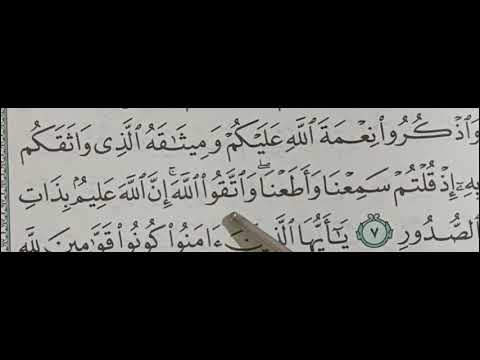 وَٱذۡكُرُواْ نِعۡمَةَ ٱللَّهِ عَلَيۡكُمۡ وَمِيثَٰقَهُ ٱلَّذِي وَاثَقَكُم
بِهِۦٓ إِذۡ قُلۡتُمۡ سَمِعۡنَا وَأَطَعۡنَاۖ وَٱتَّقُواْ ٱللَّهَۚ إِنَّ ٱللَّهَ عَلِيمُۢ بِذَاتِ
ٱلصُّدُورِ ٧ يَٰٓأَيُّهَا ٱلَّذِينَ ءَامَنُواْ كُونُواْ قَوَّٰمِينَ لِلَّهِ